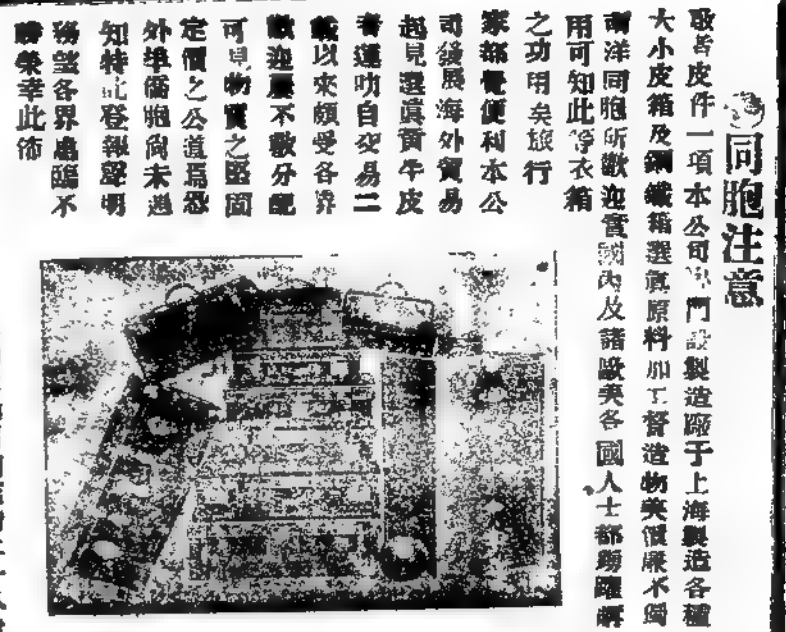 同胞注意
敬者皮件一項本公司專門設製造廠于上海製造各種
大小皮箱及鋼鐵箱選眞原料加工督造物美價廉不獨
南洋同胞所歡迎實國內及諸歐美各國人士都踴躍購
用可知此等衣箱
之功用矣旅行
家都覺便利本公
司發展海外貿易
起見選眞黃牛皮
者運叻自交易二
載以來頗受各界
歡迎屢不敷分配
可見物質之堅固
定價之公道爲恐
外埠僑胞尙未週
知特此登報聲明
務望各界惠臨不
勝榮幸此佈